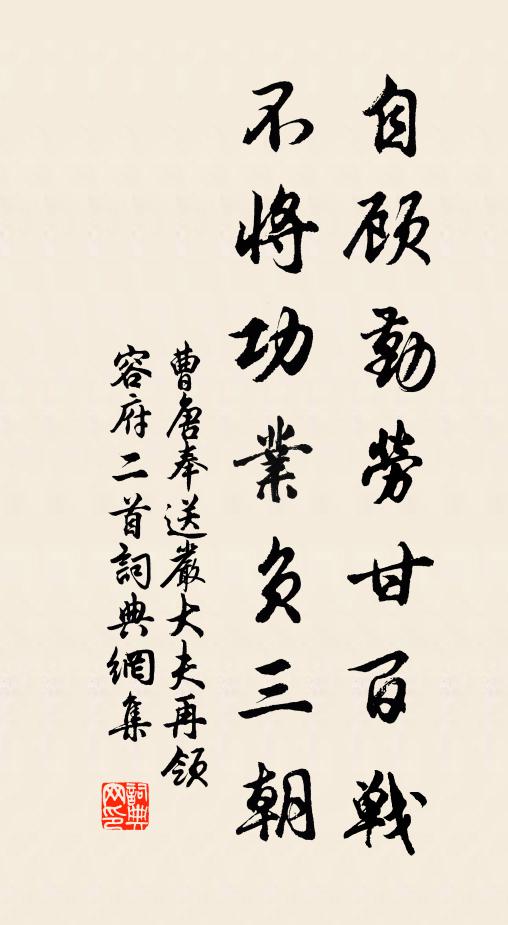 自顾勤勞甘百戦
不將功業负三朝
曹唐奉送嚴大夫再领
容府二首詞典網集
詞典网印